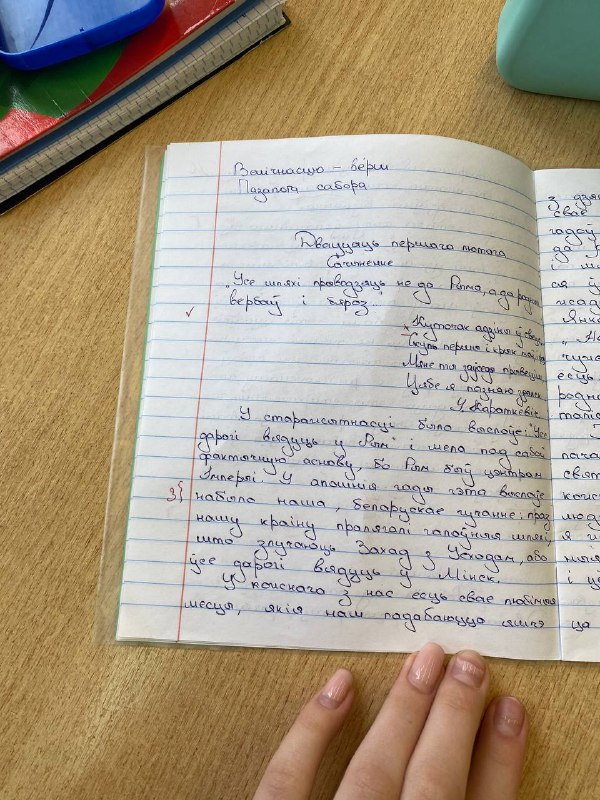 Ваічнасцю – верш
Пазалота сабора
Дваццаць першага лютага
Сачыненне
„Усе шляхі праводзяць не да Рыма, а да родных
вербаў і бяроз."
Куточак адзіны ў свеце,
Скуль першы і крык пад
Мяне ты заўсёды
Цябе я пазнаю здалёк
У. Караткевіч
У старажытнасці было выслоўе: "Усе
дарогі вядуць у Рым" і мела пад сабой
фактычную аснову, бо Рым быў цэнтрам
Імперыі. У апошнія гады гэта выслоўе
3
набыло наша, беларускае гучанне: праз
нашу краіну пралягалі галоўныя шляхі,
што злучаюць Захад з Усходам, або
ўсе дарогі вядуць у Мінск.
У кожнага з нас есць свае любімыя
месцы, якія нам падабаюцца яшчэ
з дзя
свае
гадоў
да
і
ся ў
Янк
„На
чуча
есць
родна
пача
свят
люд
і це
ца